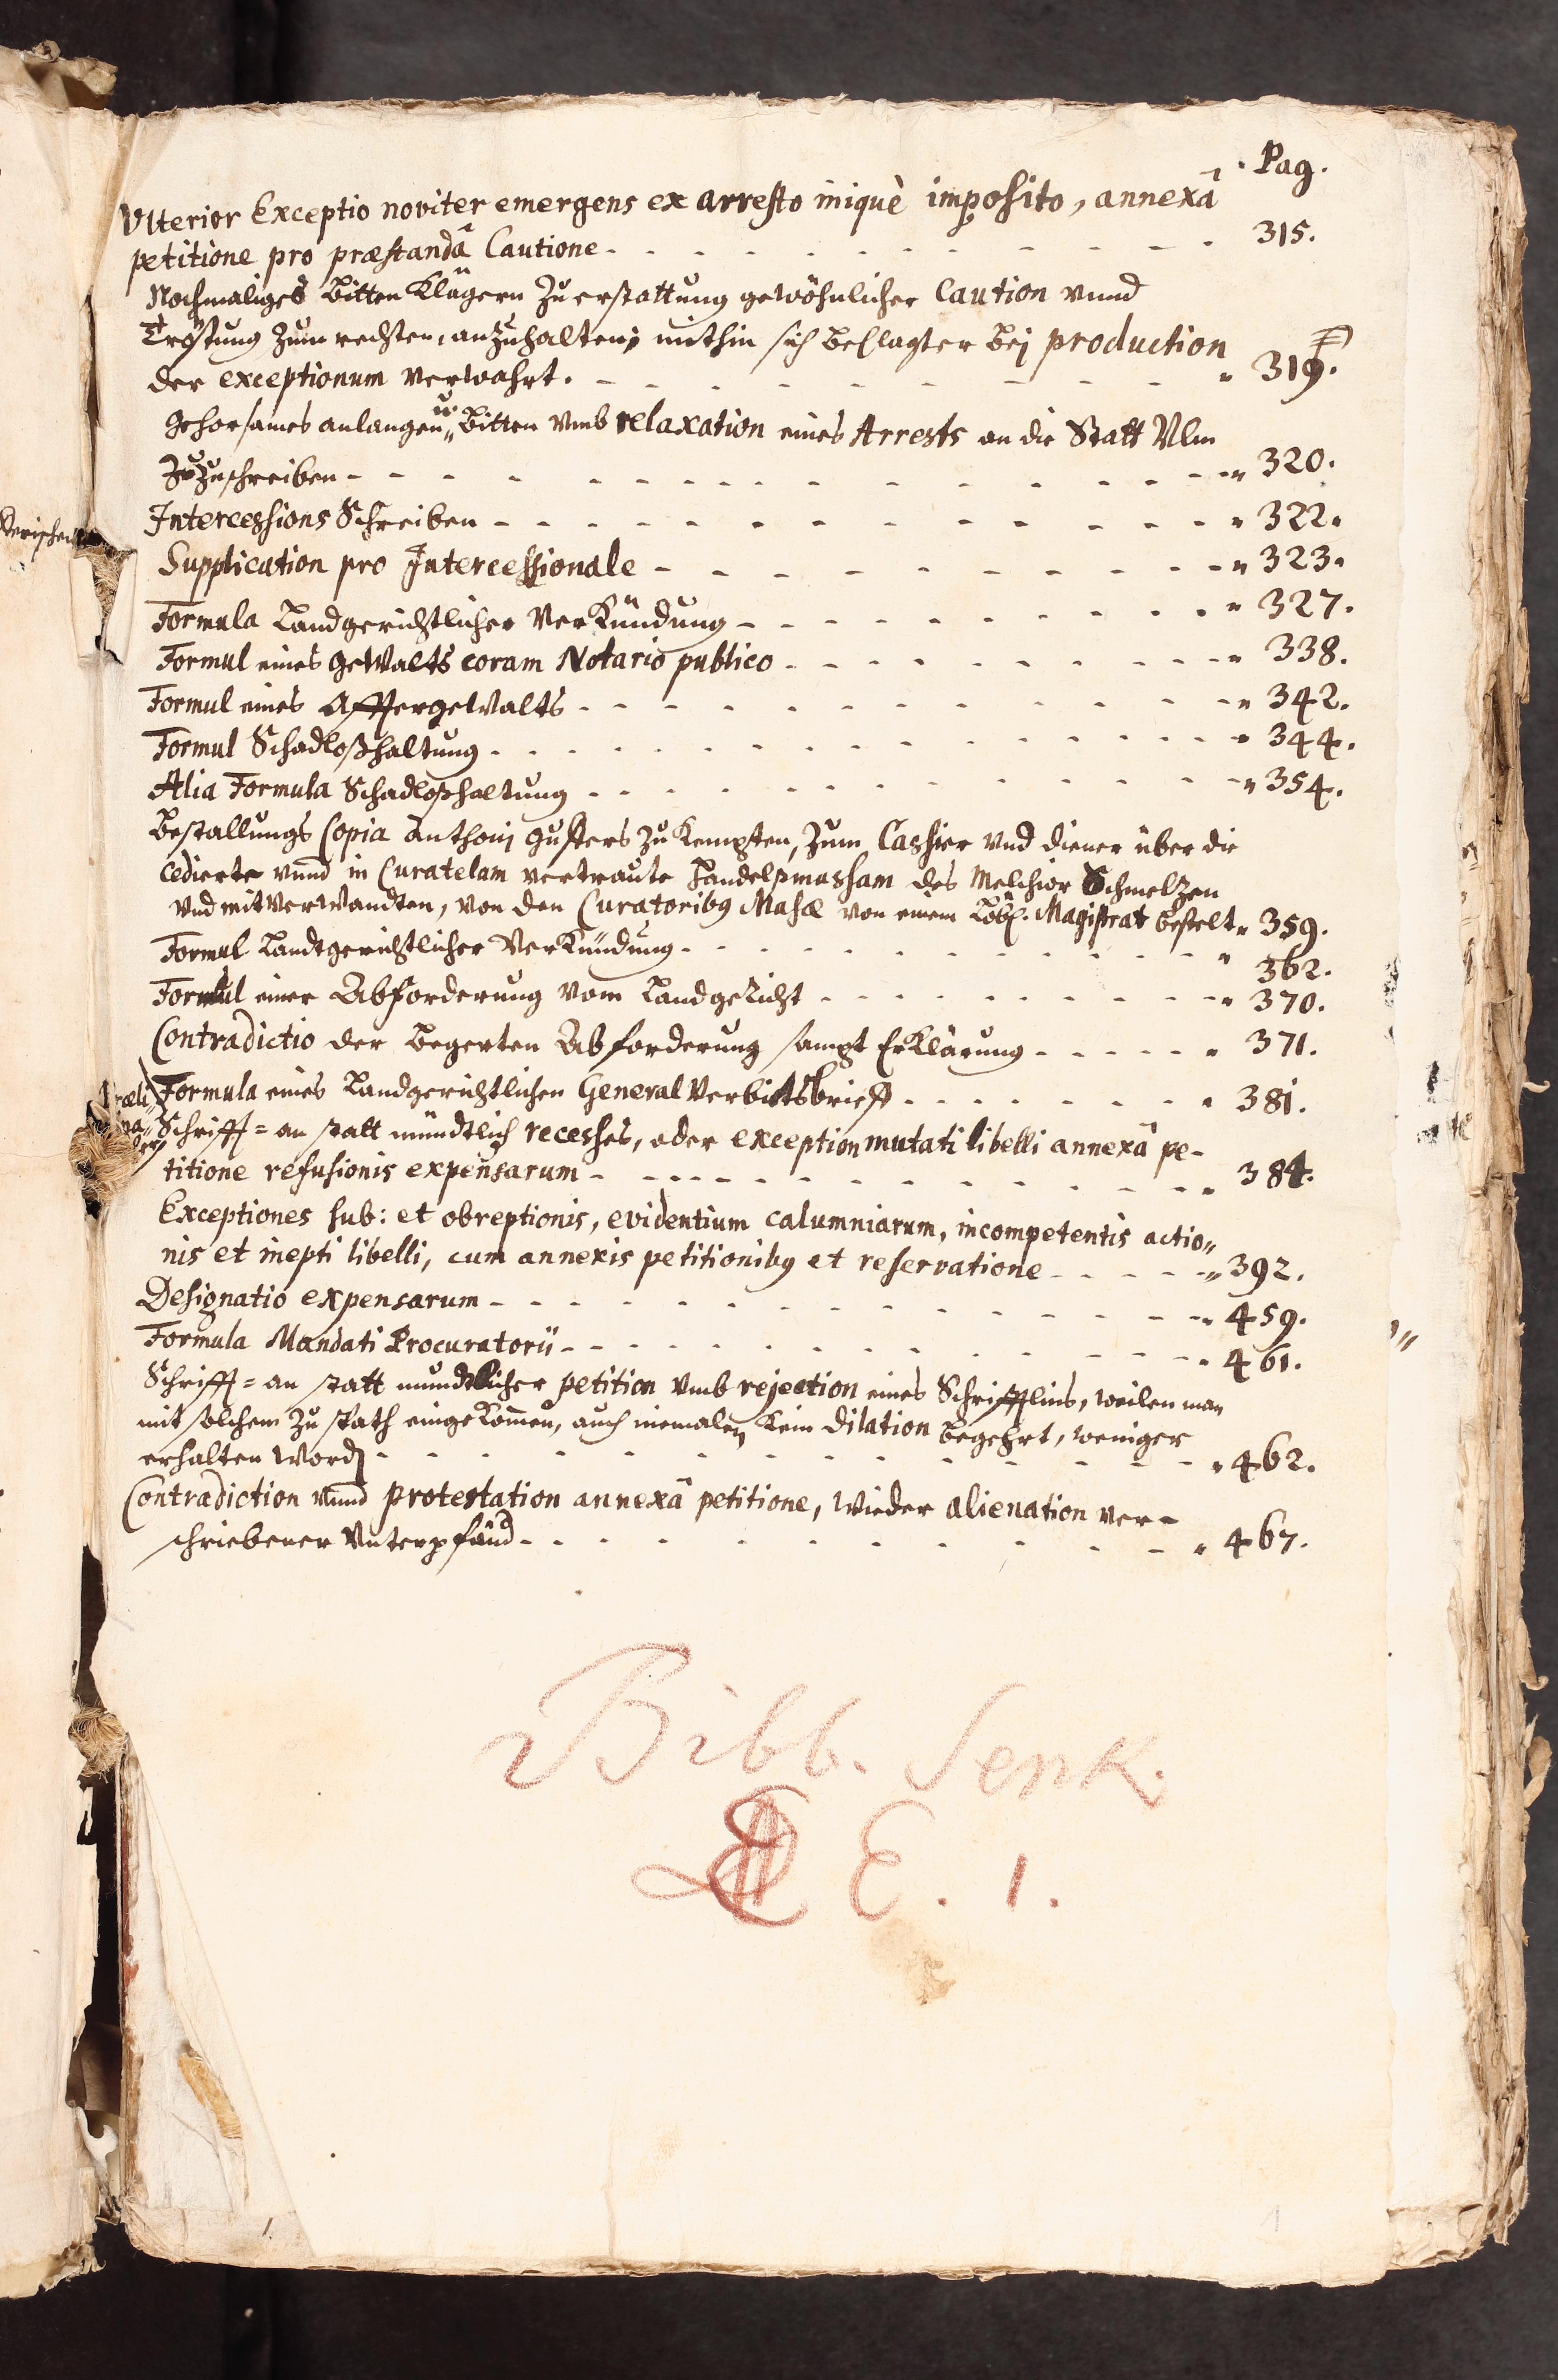 Pag.
Vlterior Exceptio noviter emergens ex arresto iniquè imposito, annexâ
petitione pro præstandâ Cautione - - - - - - - - - - 315.
Nochmaliges Bitten Klägern zu erstattung gewöhnlicher Caution vnnd
Tröstung zum rechten, anzuhalten; mithin sich beclagter bej production
der exceptionum verwahrt. - - - - - - - - - " 319.
Gehorsames anlangen u: Bitten vmb relaxation eines Arrests an die Statt Vlm
zuzuschreiben - - - - - - - - - - - - - - " 320.
Intercessions Schreiben - - - - - - - - - - - - " 322.
Supplication pro Intercessionale - - - - - - - - - " 323.
Formula Landgerichtlicher Verkündung - - - - - - - - " 327.
Formul eines gewalts coram Notario publico - - - - - - - " 338.
Formul eines Affтergewalts - - - - - - - - - - " 342.
Formul Schadloßhaltung - - - - - - - - - - - - " 344.
Alia Formula Schadloßhaltung - - - - - - - - - - " 354.
Bestallungs Copia Anthonj Gusters zu Kempten, zum Cassier vnd diener über die
Cedierte vnnd in Curatelam vertraute Handelßmassam des Melchior Schmelzen
vnd mitverwandten, von den Curatoribus Massæ von einem Löbl. Magistrat bestelt " 359.
Formul Landtgerichtlicher Verkündung - - - - - - - - " 362.
Formul einer Abforderung vom Landgericht - - - - - - - " 370.
Contradictio der Begerten Abforderung sampt Erklärung - - - - - " 371.
Formula eines Landgerichtlichen General Verbittsbrieff - - - - - - " 381.
Schrifft = an statt mündtlich recesses, oder exception mutati libelli annexâ pe-
titione refusionis expensarum - - - - - - - - - - - " 384.
Exceptiones sub: et obreptionis, evidentium calumniarum, incompetentis actio"
nis et inepti libelli, cum annexis petitionibus et reservatione - - - - " 392.
Designatio expensarum - - - - - - - - - - - - " 459.
Formula Mandati Procuratorii - - - - - - - - - - - " 461.
Schrifft = an statt mundtlicher petition vmb rejection eines Schrifftlins, weilen man
mit solchem zu spath eingekommen, auch niemalen kein dilation begehrt, weniger
erhalten word - - - - - - - - - - - - - " 462.
Contradiction vnnd protestation annexâ petitione, wieder alienation ver-
schriebener Vnterpfand - - - - - - - - - - " 467.
Bibb. Senk.
E. 1.